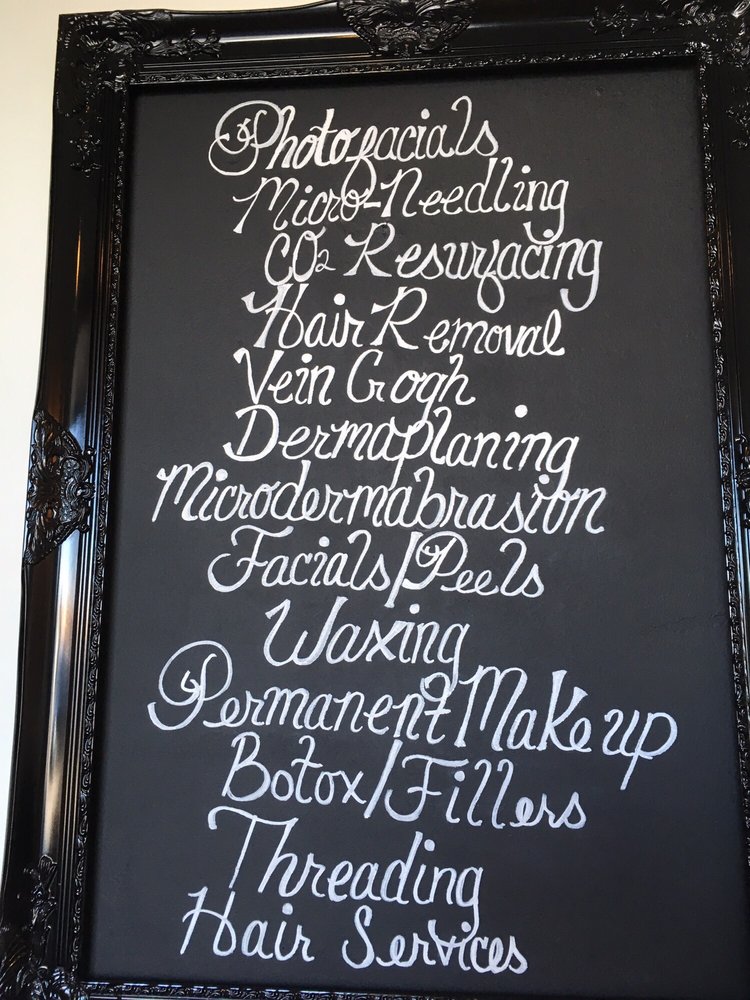 Photofacials
Micro-Needling
CO₂ Resurfacing
Hair Removal
Vein Gogh
Dermaplaning
Microdermabrasion
Facials/Peels
Waxing
Permanent Make up
Botox/Fillers
Threading
Hair Services